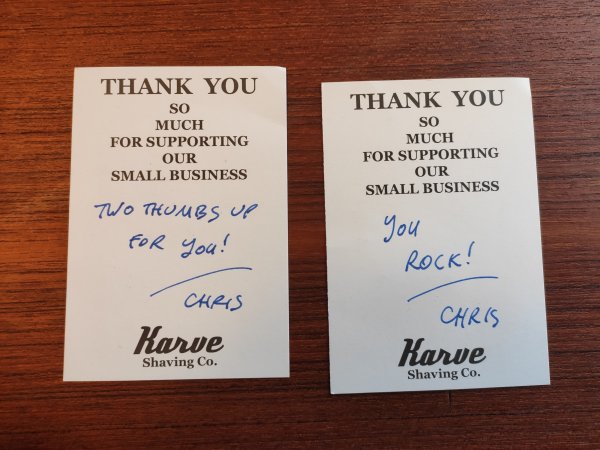 THANK YOU
SO
MUCH
FOR SUPPORTING
OUR
SMALL BUSINESS
TWO THUMBS UP
FOR You!
CHRIS
Karve
Shaving Co.
THANK YOU
SO
MUCH
FOR SUPPORTING
OUR
SMALL BUSINESS
You
ROCK!
CHRIS
Karve
Shaving Co.